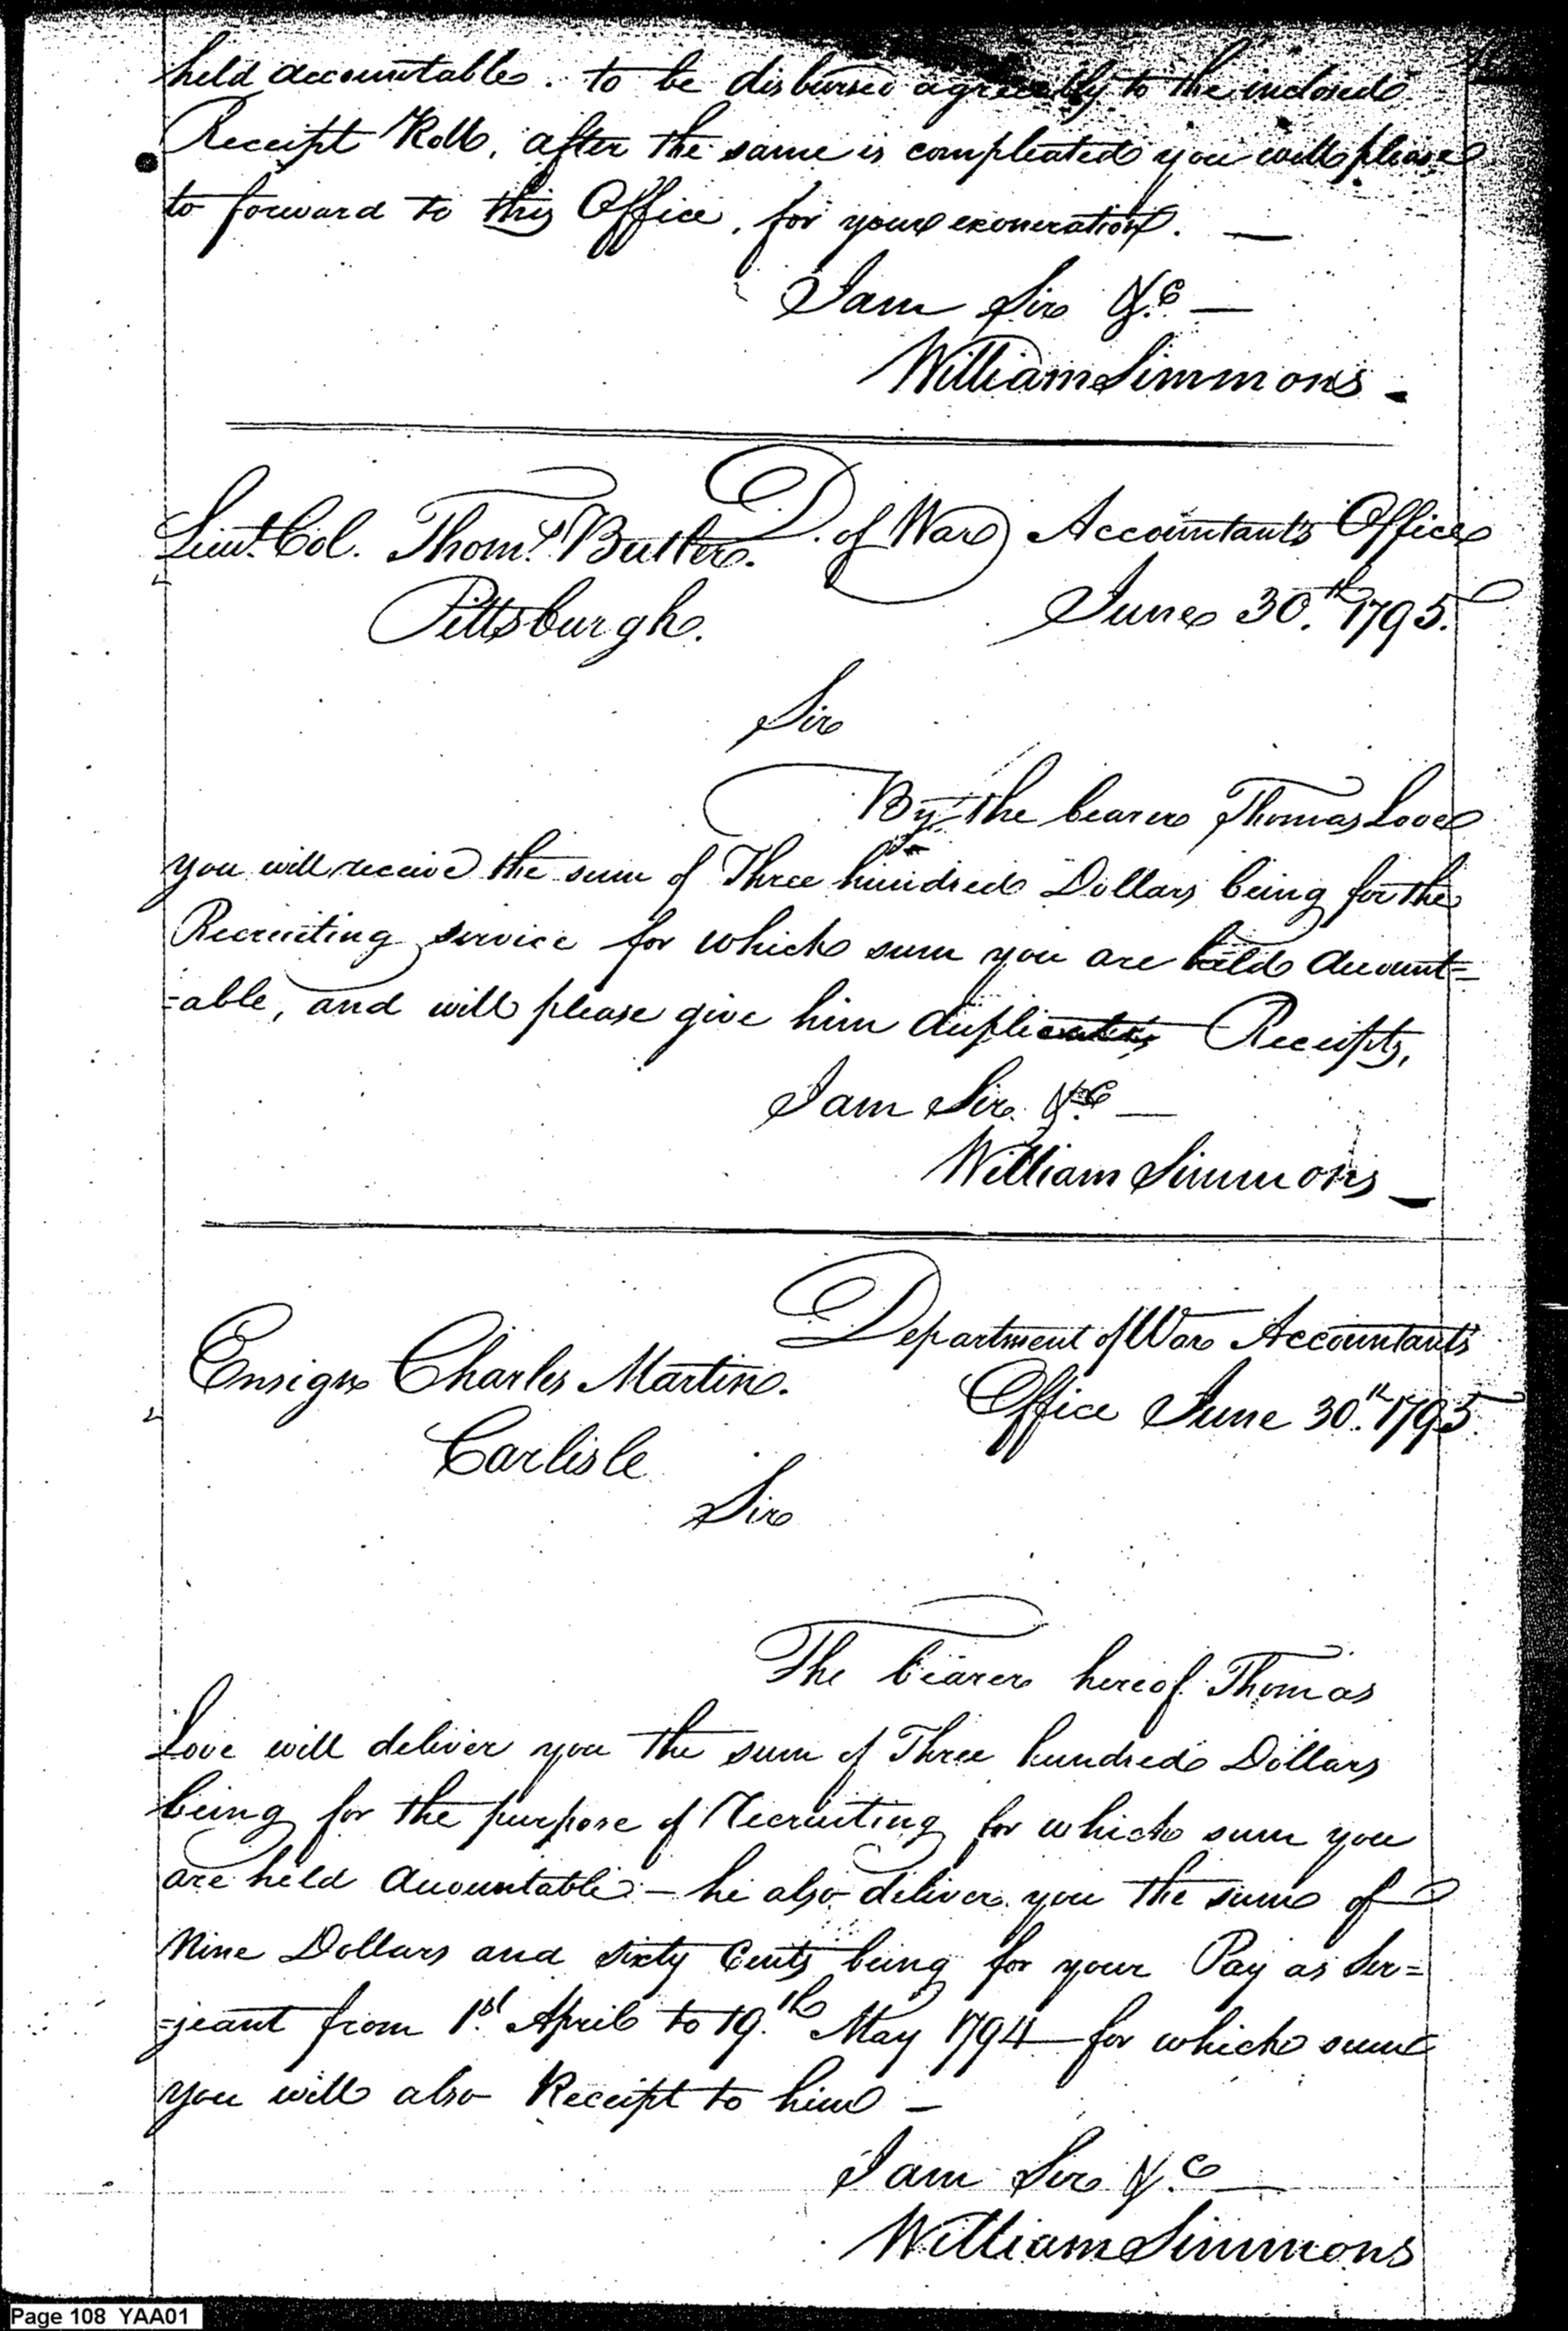 held accountable. to be disbursed agreeably to the inclosed
Receipt Roll, after the same is compleated you will please
to forward to this Office, for your exoneration. —
I am Sir &c —
William Simmons.
D. of War Accountants Office
Lieut. Col. Thoms. Butler.
June 30th. 1795.
Pittsburgh.
Sir
By the bearer Thomas Love
you will receive the sum of Three hundred Dollars being for the
Recruiting service for which sum you are held account=
=able, and will please give him duplicate Receipts,
I am Sir. &c —
William Simmons —
Department of War Accountants
Ensign Charles Martin.
Office June 30th. 1795.
Carlisle
Sir
The bearer hereof Thomas
Love will deliver you the sum of Three hundred Dollars
being for the purpose of Recruiting for which sum you
are held accountable — he also deliver you the sum of
Nine Dollars and sixty Cents being for your Pay as Ser=
=jeant from 1st. April to 19.th May 1794 — for which sum
you will also Receipt to him —
I am Sir &c —
William Simmons
Page 108 YAA01